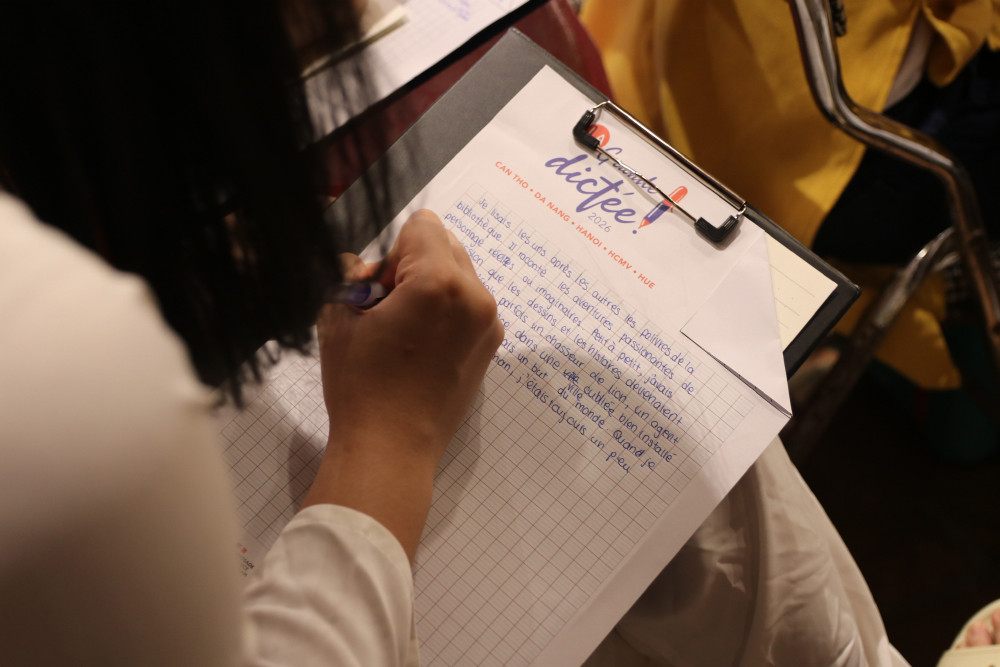 La grande
dictée!
2026
CAN THO • DA NANG • HANOI • HCMV • HUE
Je lisais les uns après les autres les poilivres de la
bibliothèque. Il raconte les aventures passionantes de
personage réelles ou imaginaires. Petit à petit, j'avais
que les dessins et les histoires devenaient
parfois un chasseur de lion, un agent
dans une ville oubliée, bien installé
un but du monde. Quand je
non, j'étais toujours un peu